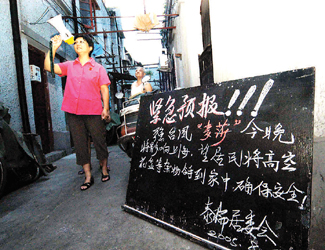 紧急预报!!!
强台风“麦莎”今晚
将影响上海,望居民将高空
花盆等杂物移到家中,确保安全!
居委会
2005.8